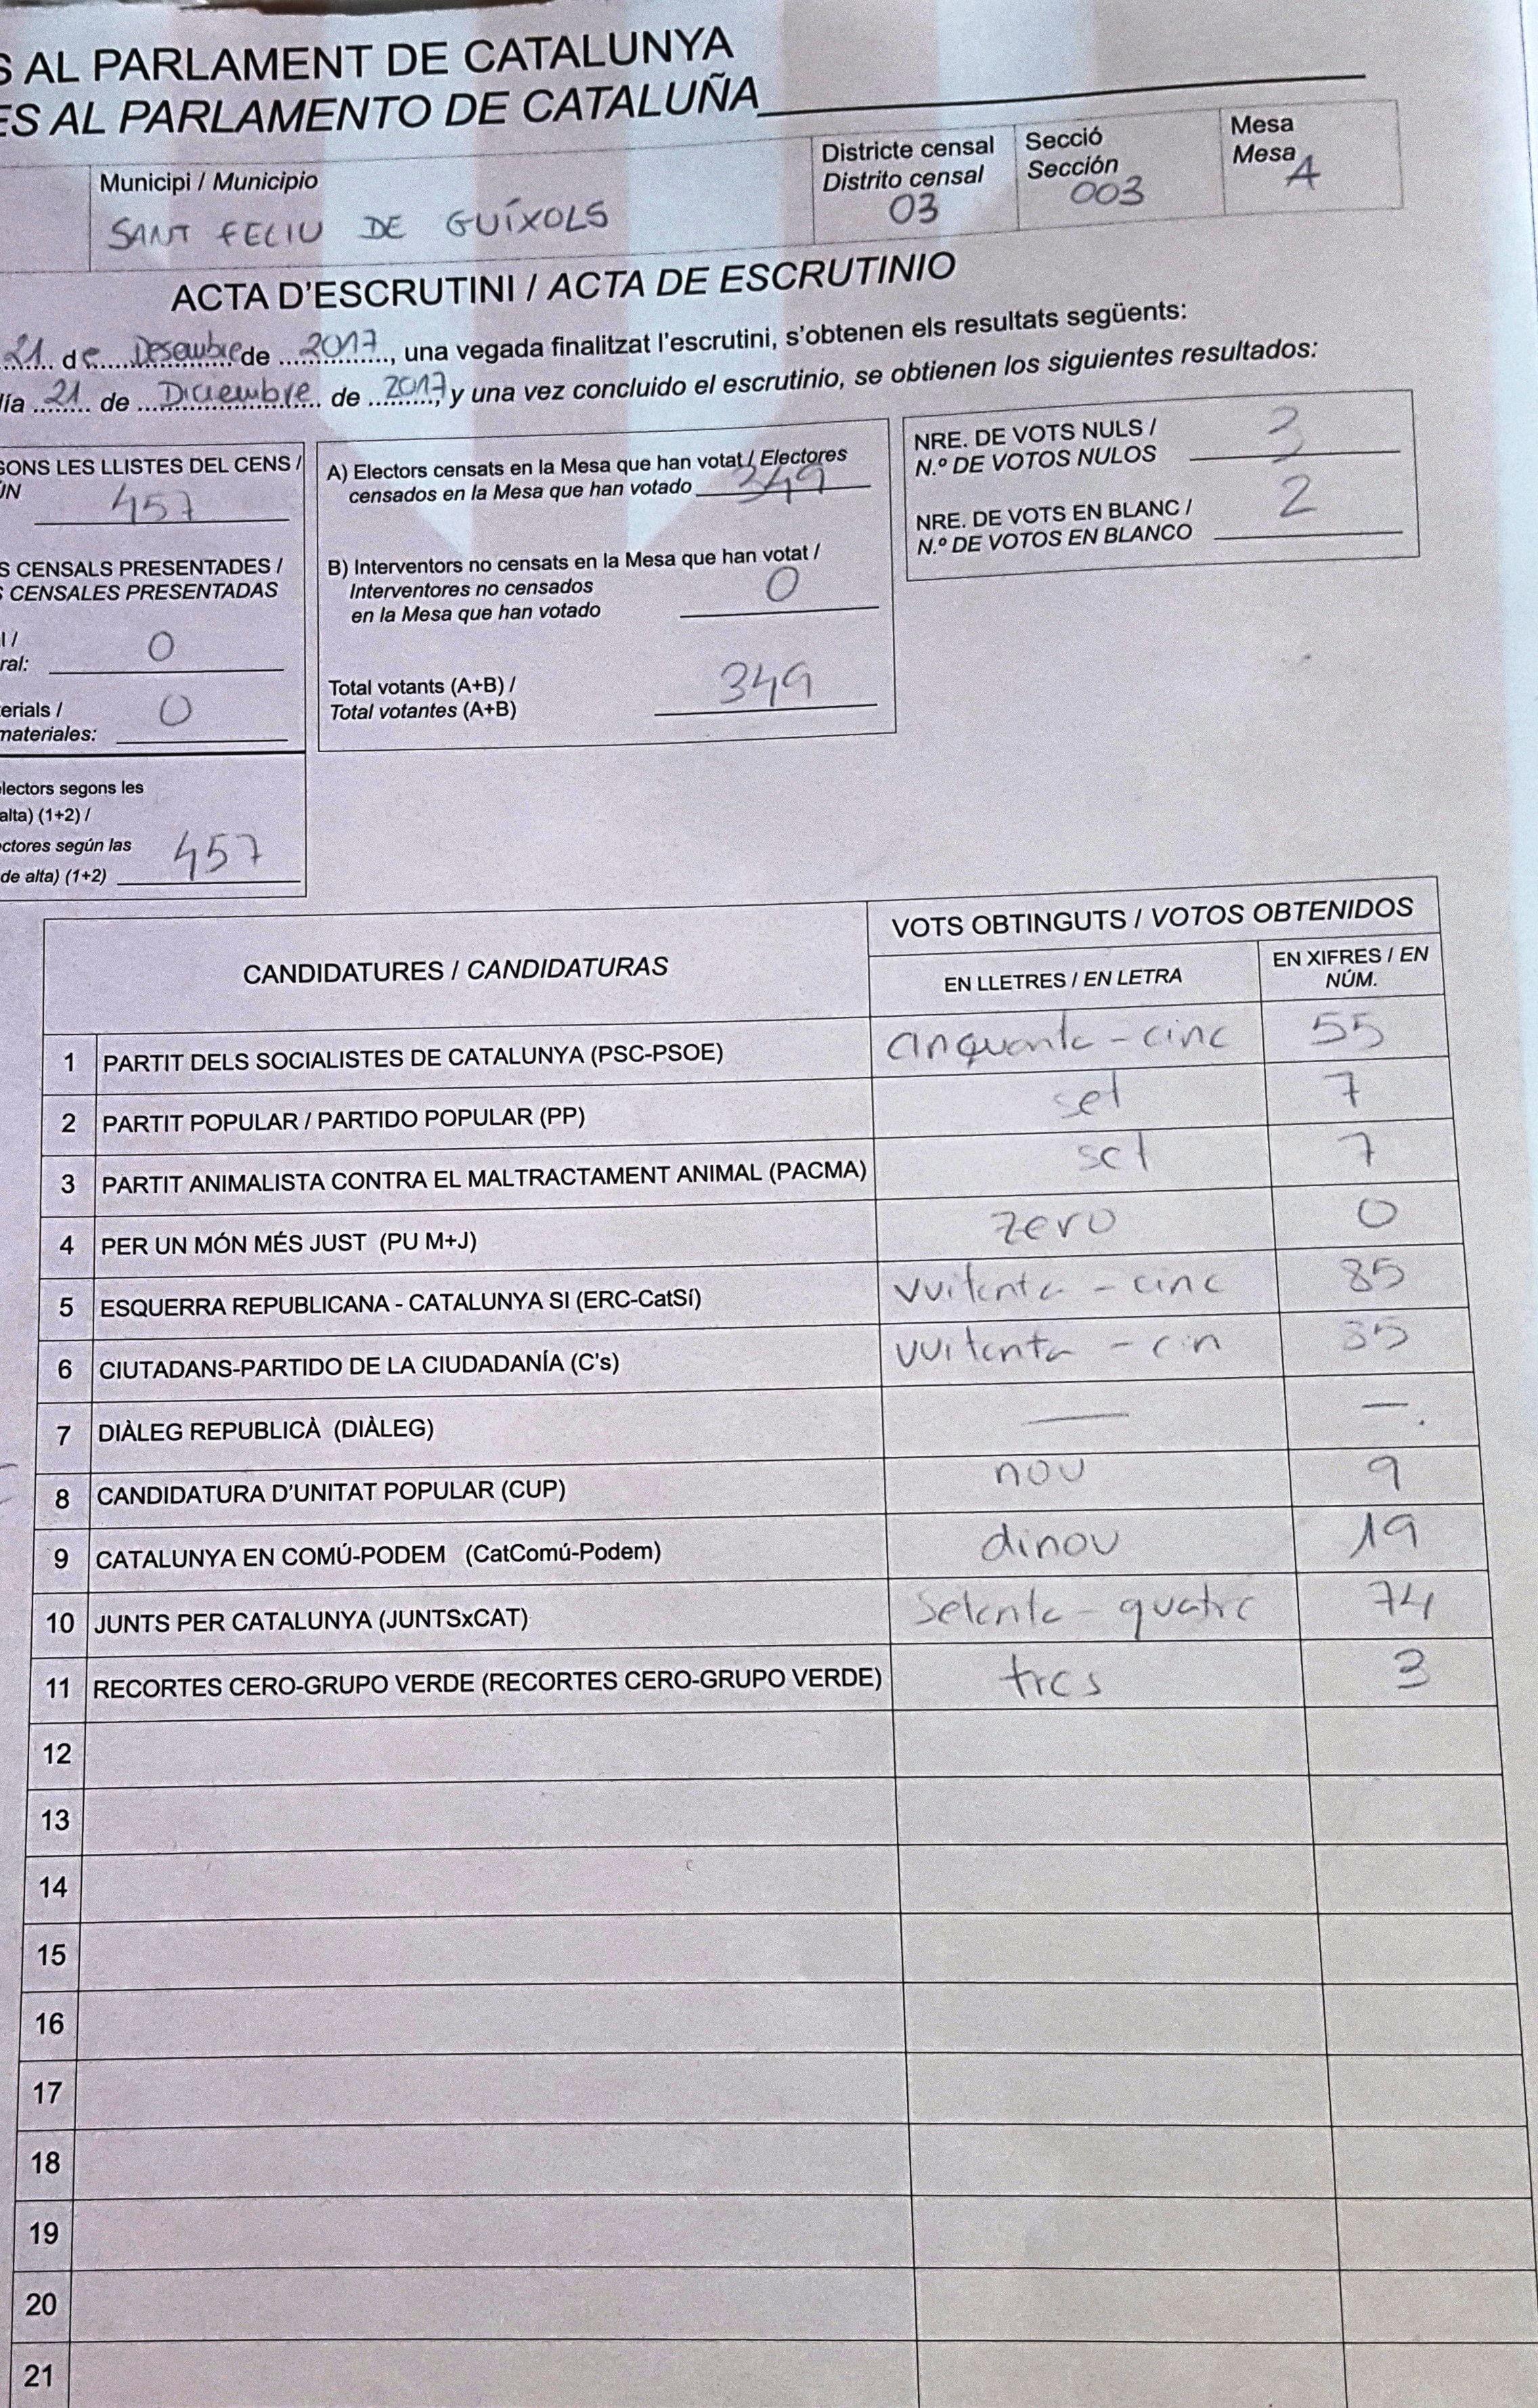 S AL PARLAMENT DE CATALUNYA
ES AL PARLAMENTO DE CATALUÑA
Municipi / Municipio
SANT FELIU DE GUÍXOLS
Districte censal
Distrito censal
03
Secció
Sección
003
Mesa
Mesa
A
ACTA D'ESCRUTINI / ACTA DE ESCRUTINIO
21 de Desembre de 2017, una vegada finalitzat l'escrutini, s'obtenen els resultats següents:
ía 21 de Diciembre de 2017, y una vez concluido el escrutinio, se obtienen los siguientes resultados:
GONS LES LLISTES DEL CENS /
ÚN 457
S CENSALS PRESENTADES /
S CENSALES PRESENTADAS
l /
ral: 0
erials /
materiales: 0
lectors segons les
alta) (1+2) /
ctores según las
de alta) (1+2) 457
A) Electors censats en la Mesa que han votat / Electores
censados en la Mesa que han votado 349
B) Interventors no censats en la Mesa que han votat /
Interventores no censados
en la Mesa que han votado 0
Total votants (A+B) /
Total votantes (A+B) 349
NRE. DE VOTS NULS /
N.º DE VOTOS NULOS
NRE. DE VOTS EN BLANC /
N.º DE VOTOS EN BLANCO 2
CANDIDATURES / CANDIDATURAS
VOTS OBTINGUTS / VOTOS OBTENIDOS
EN LLETRES / EN LETRA
EN XIFRES / EN NÚM.
1 PARTIT DELS SOCIALISTES DE CATALUNYA (PSC-PSOE) cinquanta-cinc 55
2 PARTIT POPULAR / PARTIDO POPULAR (PP) set 7
3 PARTIT ANIMALISTA CONTRA EL MALTRACTAMENT ANIMAL (PACMA) set 7
4 PER UN MÓN MÉS JUST (PU M+J) zero 0
5 ESQUERRA REPUBLICANA - CATALUNYA SI (ERC-CatSí) vuitanta-cinc 85
6 CIUTADANS-PARTIDO DE LA CIUDADANÍA (C's) vuitanta-cin 85
7 DIÀLEG REPUBLICÀ (DIÀLEG) — —.
8 CANDIDATURA D'UNITAT POPULAR (CUP) nou 9
9 CATALUNYA EN COMÚ-PODEM (CatComú-Podem) dinou 19
10 JUNTS PER CATALUNYA (JUNTSxCAT) setanta-quatre 74
11 RECORTES CERO-GRUPO VERDE (RECORTES CERO-GRUPO VERDE) tres 3
12
13
14
15
16
17
18
19
20
21